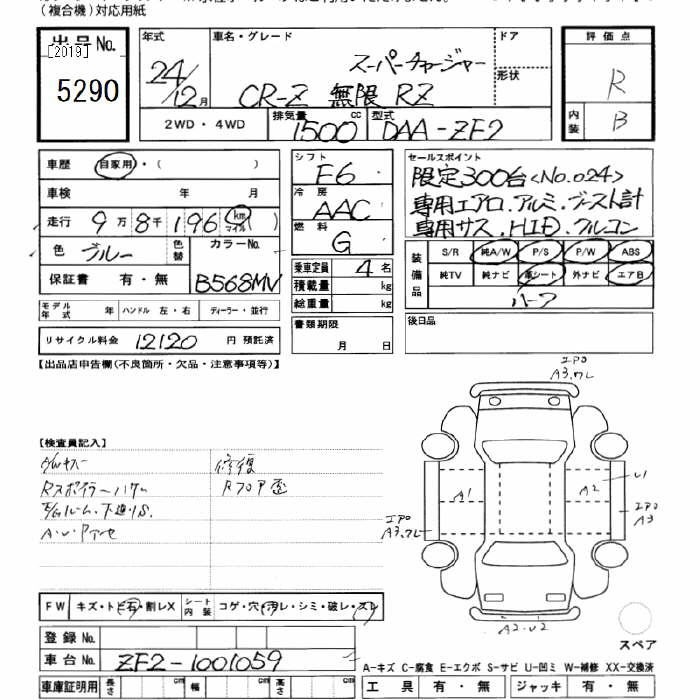 (複合機)対応用紙
出品No.
[2019]
5290
年式
24/12月
車名・グレード
スーパーチャージャー
CR-Z 無限 RZ
ドア
形状
評価点
R
内装
B
2WD・4WD
排気量
1500
cc
型式
DAA-ZF2
車歴
自家用・( )
車検 年 月
走行 9万8千196 km マイル ( )
色 ブルー 色替
カラーNo.
B568MV
保証書 有・無
モデル年式 年 ハンドル 左・右 ディーラー・並行
リサイクル料金 12120 円 預託済
シフト
F6
冷房
AAC
燃料
G
乗車定員 4名
積載量 kg
総重量 kg
書類期限
月 日
セールスポイント
限定300台<No.024>
専用エアロ.アルミ.ブースト計
専用サス.HID.クルコン
装備品
S/R 純A/W P/S P/W ABS
純TV 純ナビ 革シート 外ナビ エアB
ハーフ
後日品
【出品店申告欄(不良箇所・欠品・注意事項等)】
【検査員記入】
修復
Rスポイラーハガレ
A.U.Pアセ
エクボ
A3.ワレ
A1
A2
U1
エクボ
A3
エクボ
A3.ワレ
A2.U2
スペア
FW キズ・トビ石・割レX
シート内装 コゲ・穴・汚レ・シミ・破レ・スレ
登録No.
車台No. ZF2-1001059
A-キズ C-腐食 E-エクボ S-サビ U-凹ミ W-補修 XX-交換済
車庫証明用 長さ cm 幅 cm 高さ cm
工具 有・無 ジャッキ 有・無